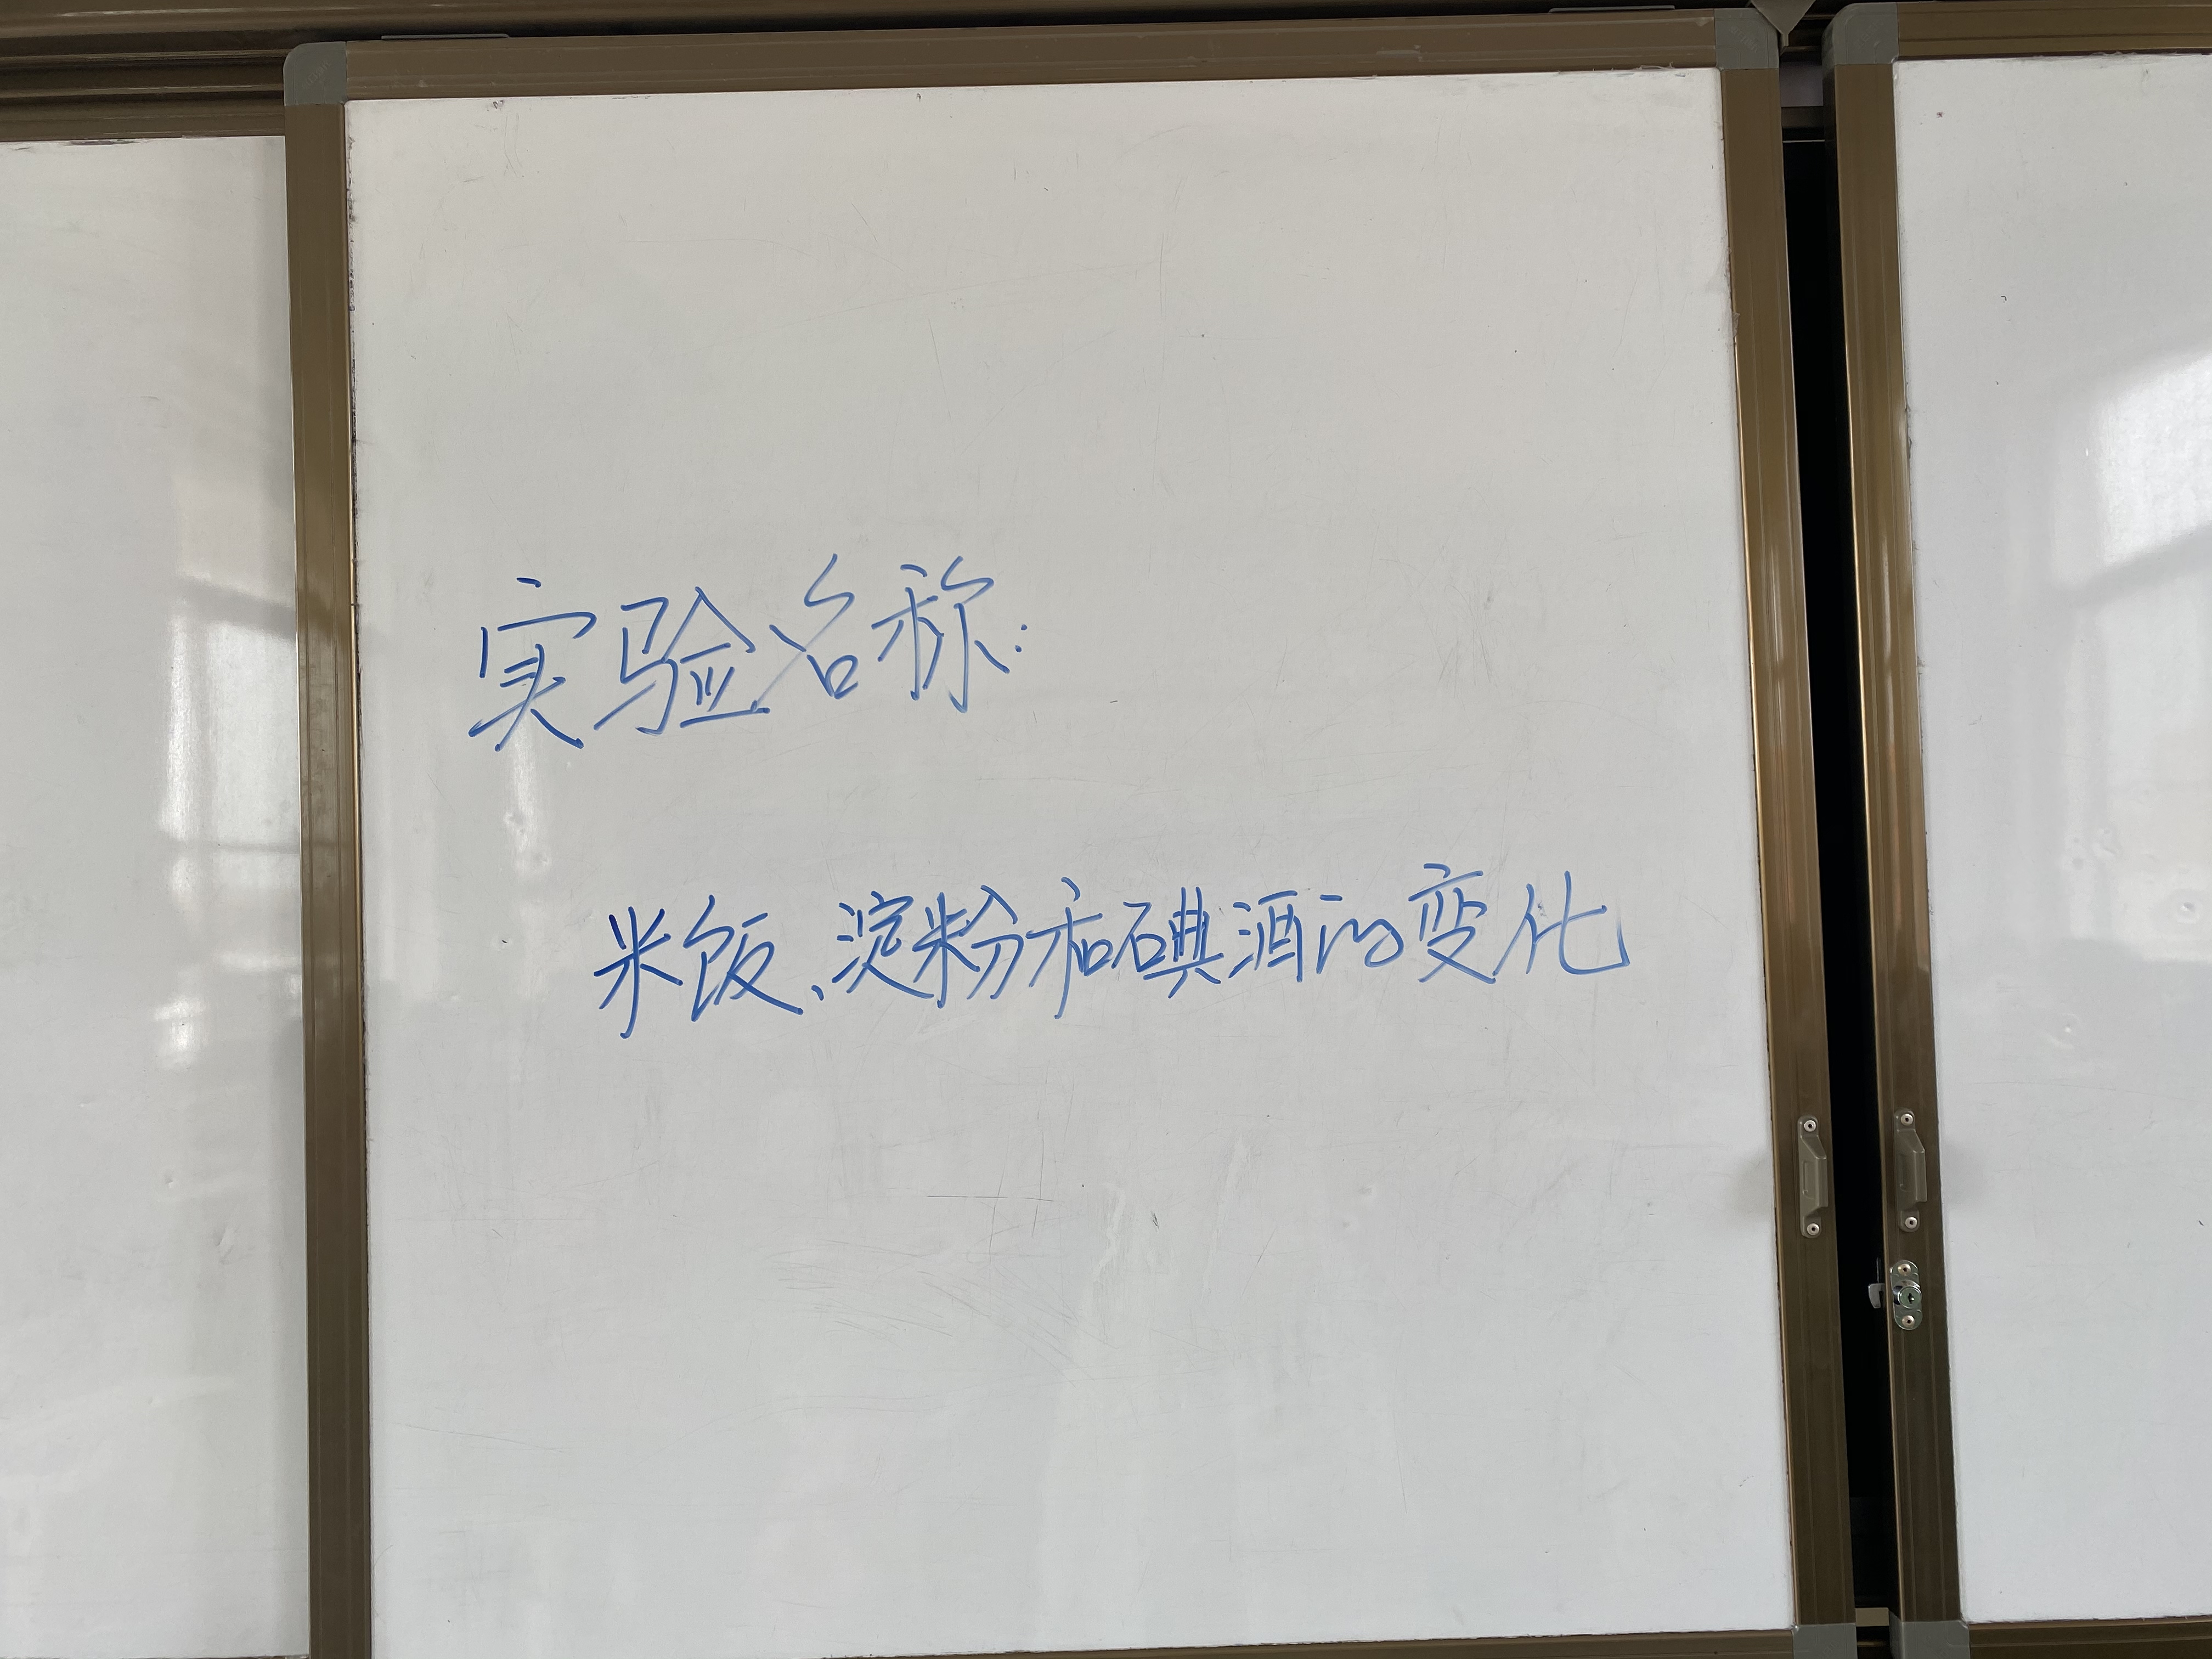 实验名称:
米饭、淀粉和碘酒的变化